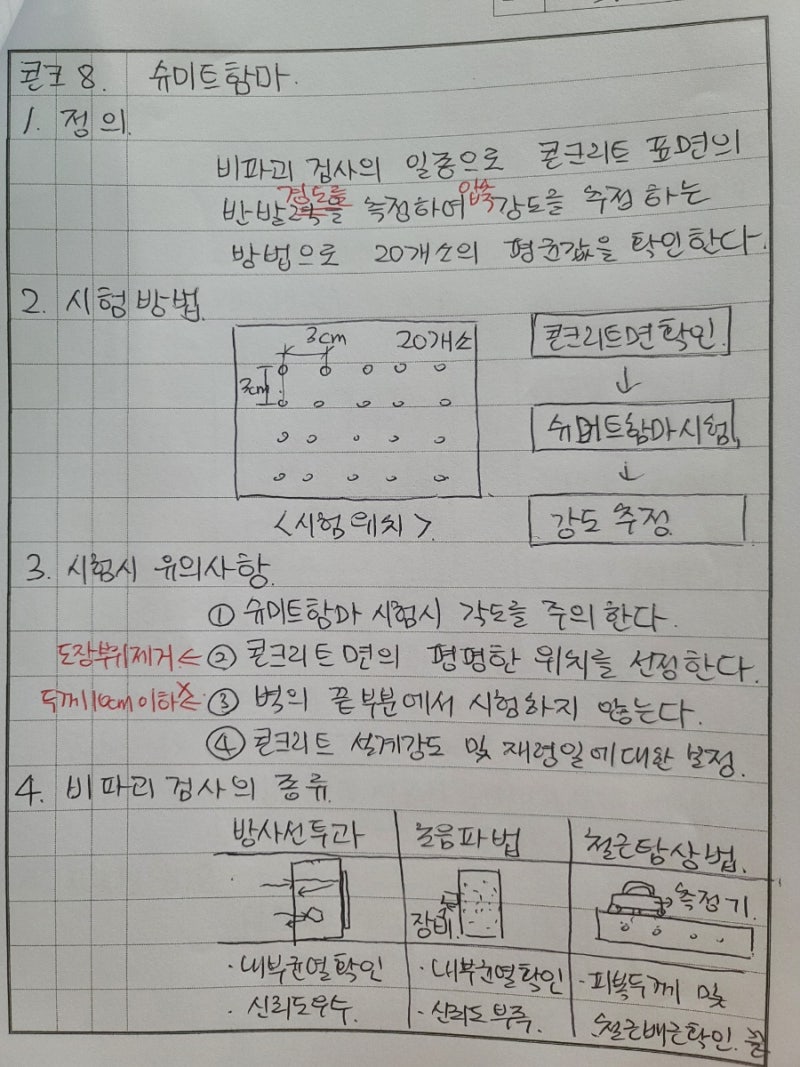 콘크 8. 슈미트함마.
1. 정의.
비파괴 검사의 일종으로 콘크리트 표면의
경도를 압축
반발 측정하여 강도를 추정 하는
방법으로 20개소의 평균값을 확인한다.
2. 시험방법.
3cm 20개소
3cm
<시험위치>.
콘크리트면확인.
↓
슈미트함마시험.
↓
강도 추정.
3. 시험시 유의사항.
① 슈미트함마 시험시 각도를 주의한다.
도장부위제거 ← ② 콘크리트면의 평평한 위치를 선정한다.
두께10cm이하X ← ③ 벽의 끝부분에서 시험하지 않는다.
④ 콘크리트 설계강도 및 재령일에대한 보정.
4. 비파괴검사의 종류.
방사선투과 초음파법 철근탐상법.
장비. 측정기.
·내부균열확인 ·내부균열확인 ·피복두께 및
·신뢰도우수. ·신뢰도부족. 철근배근확인. 끝